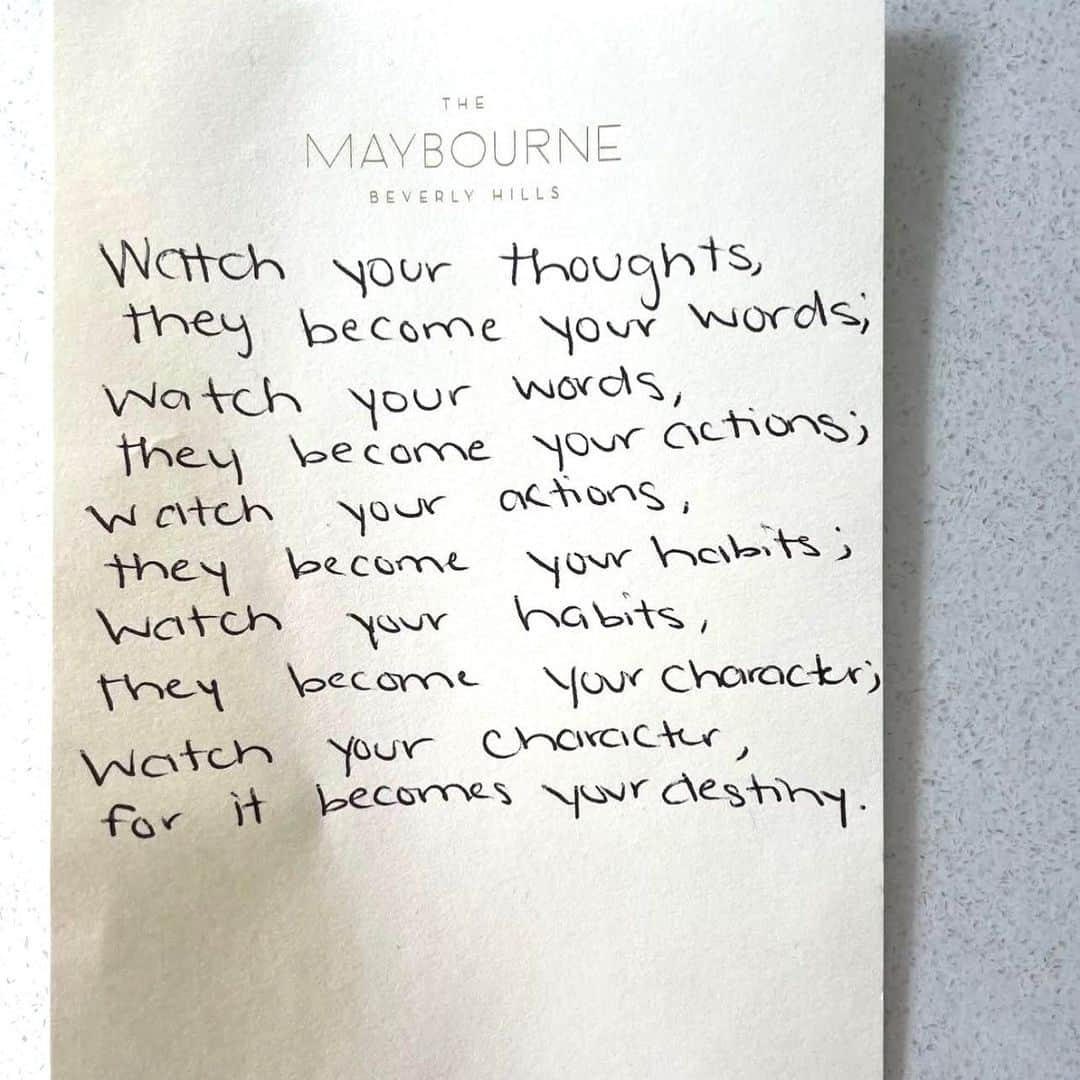 THE
MAYBOURNE
BEVERLY HILLS
Watch your thoughts,
they become your words;
watch your words,
they become your actions;
watch your actions,
they become your habits;
watch your habits,
they become your character;
watch your character,
for it becomes your destiny.